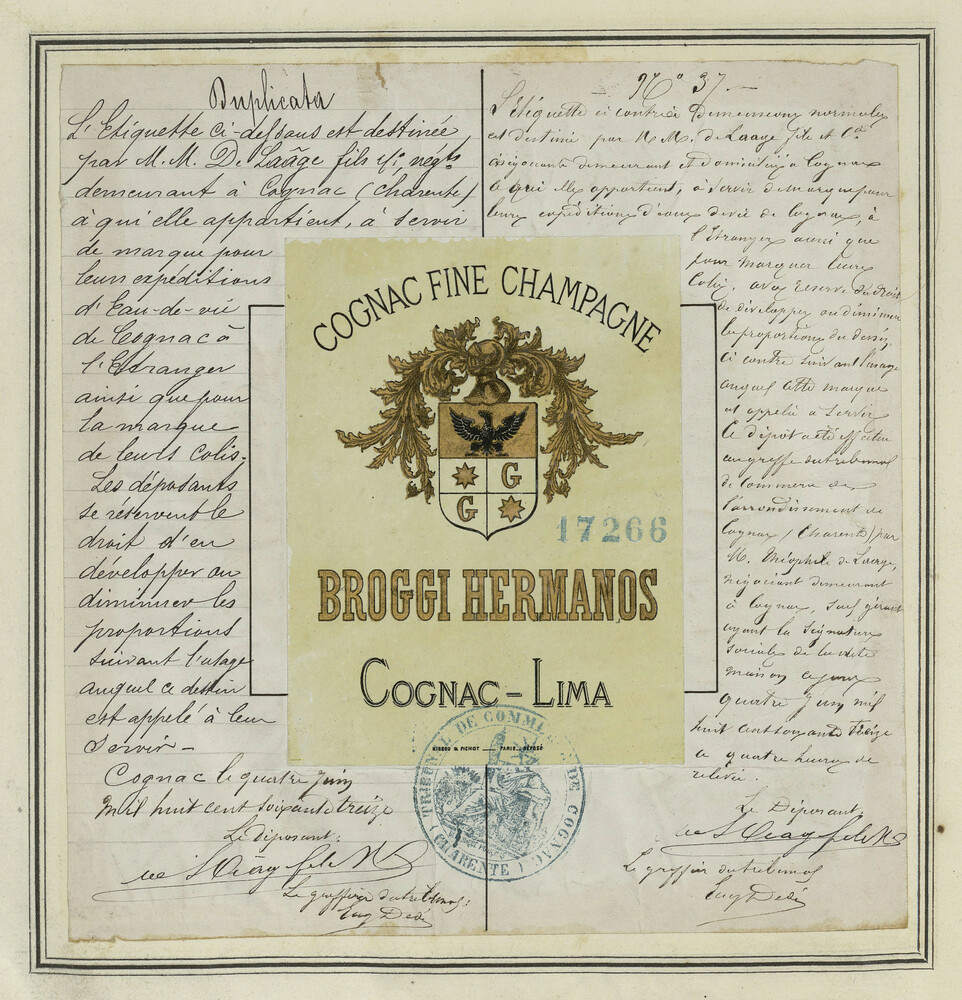 Duplicata
L'Etiquette ci-dessous est destinée
par M.M. De Laâge fils & Cie négts
demeurant à Cognac (Charente)
à qui elle appartient, à servir
de marque pour
leurs expéditions
d'Eau-de-vie
de Cognac à
l'Etranger
ainsi que pour
la marque
de leurs colis.
Les déposants
se réservent le
droit d'en
développer ou
diminuer les
proportions
suivant l'usage
auquel ce dessin
est appelé à leur
servir -
Cognac le quatre Juin
mil huit cent soixante treize
Le déposant:
Le greffier du tribunal:
COGNAC FINE CHAMPAGNE
G
G
17266
BROGGI HERMANOS
COGNAC - LIMA
PARIS. DÉPOSÉ
TRIBUNAL DE COMMERCE DE COGNAC
(CHARENTE)
No 37. -
L'étiquette ci contre de dimensions normales
est destiné par M.M. de Laage fils et Cie
négociants demeurant et domiciliés à Cognac
à qui elle appartient, à servir de marque pour
leurs expéditions d'eaux de vie de Cognac, à
l'Etranger ainsi que
pour marquer leurs
Colis, avec réserve du droit
de développer ou diminuer
les proportions du dessin
ci contre suivant l'usage
auquel cette marque
est appelée à servir
Le dépôt a été effectué
au greffe du tribunal
de commerce de
l'arrondissement de
Cognac (Charente) par
M. Théophile de Laage,
négociant demeurant
à Cognac,
ayant la signature
sociale de la dite
maison ce jour
quatre Juin mil
huit cent soixante treize
a quatre heures de
relevée.
Le Déposant
Le greffier du tribunal